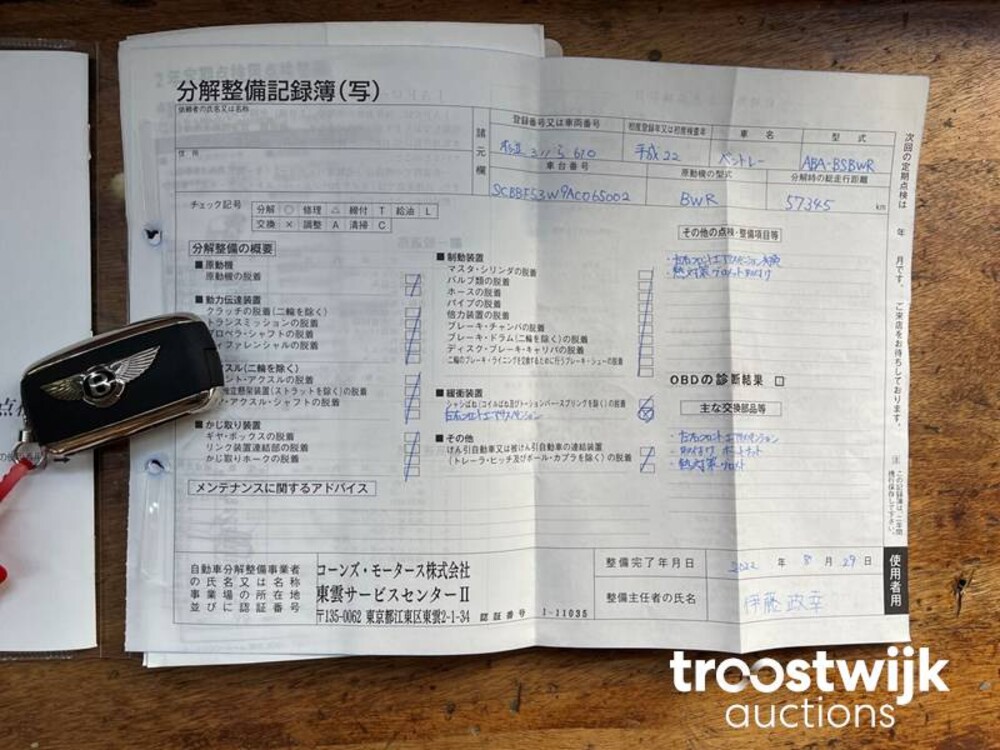 分解整備記録簿(写)
依頼者の氏名又は名称
住所
諸元欄
登録番号又は車両番号
初度登録年又は初度検査年
車名
型式
610
平成22
ベントレー
ABA-BSBWR
車台番号
原動機の型式
分解時の総走行距離
SCBBF53W9AC065002
BWR
57345 km
チェック記号
分解 ○ 修理 △ 締付 T 給油 L
交換 × 調整 A 清掃 C
分解整備の概要
■原動機
原動機の脱着
■動力伝達装置
クラッチの脱着(二輪を除く)
トランスミッションの脱着
プロペラ・シャフトの脱着
ィファレンシャルの脱着
スル(二輪を除く)
ント・アクスルの脱着
独立懸架装置(ストラットを除く)の脱着
・アクスル・シャフトの脱着
■かじ取り装置
ギヤ・ボックスの脱着
リンク装置連結部の脱着
かじ取りホークの脱着
■制動装置
マスタ・シリンダの脱着
バルブ類の脱着
ホースの脱着
パイプの脱着
倍力装置の脱着
ブレーキ・チャンバの脱着
ブレーキ・ドラム(二輪を除く)の脱着
ディスク・ブレーキ・キャリパの脱着
二輪のブレーキ・ライニングを交換するために行うブレーキ・シューの脱着
■緩衝装置
シャシばね(コイルばね及びトーションバー・スプリングを除く)の脱着
左右フロントエアサスペンション
■その他
けん引自動車又は被けん引自動車の連結装置
(トレーラ・ヒッチ及びボール・カプラを除く)の脱着
その他の点検・整備項目等
・左右フロントエアサスペンション交換
OBDの診断結果 □
主な交換部品等
・左右フロントエアサスペンション
メンテナンスに関するアドバイス
自動車分解整備事業者
の氏名又は名称
事業場の所在地
並びに認証番号
コーンズ・モータース株式会社
東雲サービスセンターⅡ
〒135-0062 東京都江東区東雲2-1-34
認証番号 1-11035
整備完了年月日
2022 年 8 月 29 日
整備主任者の氏名
伊藤政幸
次回の定期点検は 年 月です。ご来店をお待ちしております。
注 この記録簿は、二年間携行保存して下さい。
使用者用
B
troostwijk
auctions